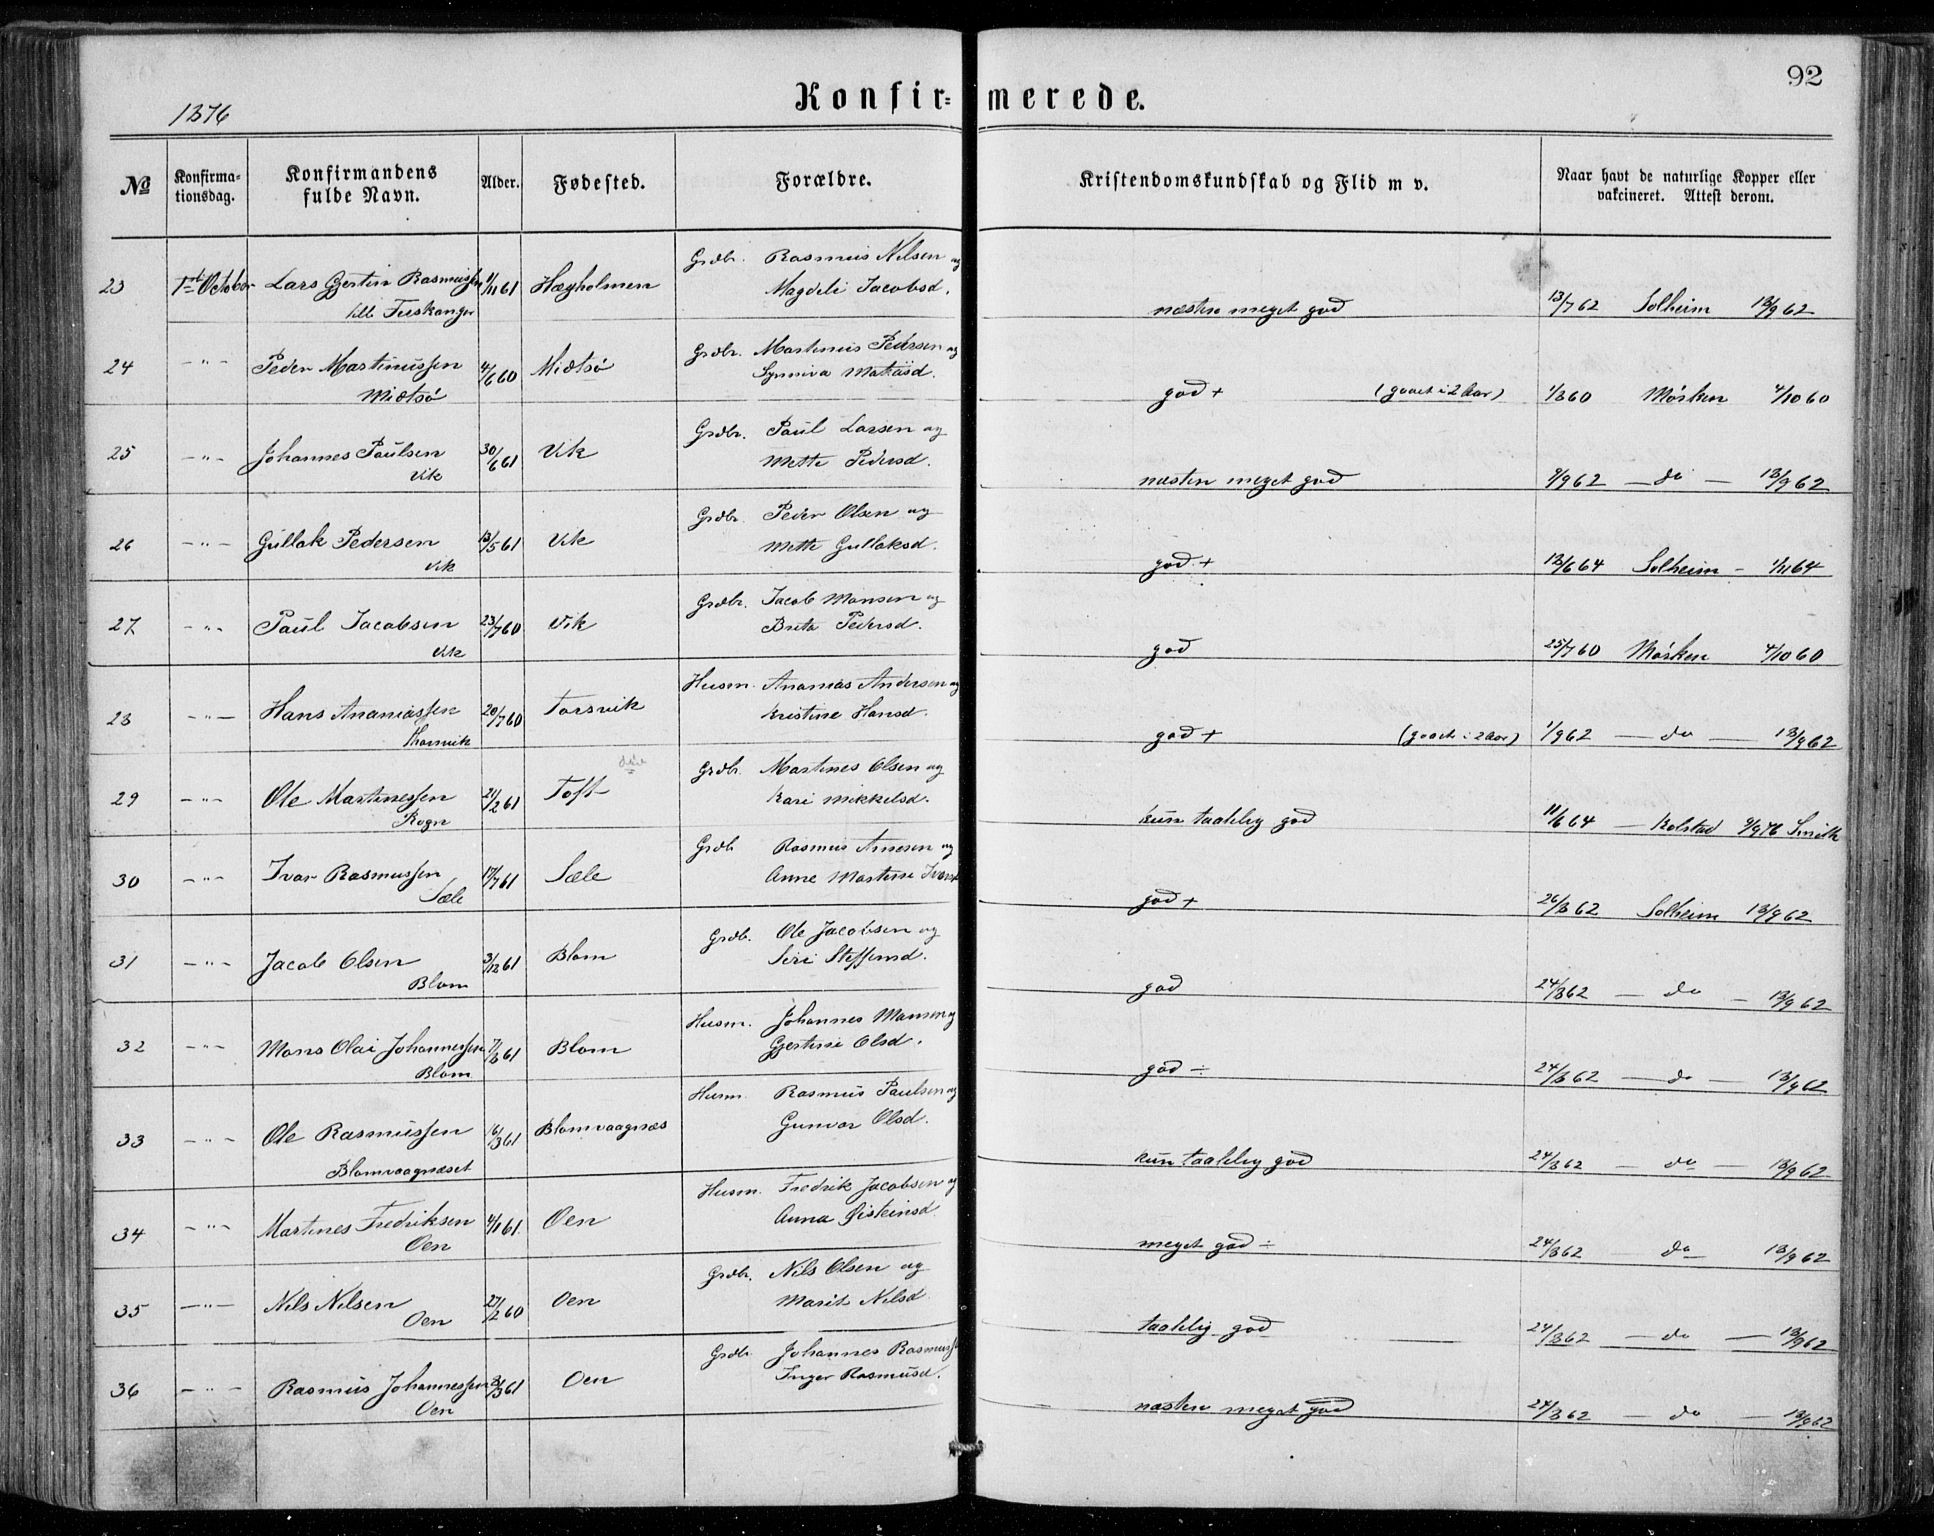 92
1876
Konfirmerede.
No
Konfirmationsdag.
Konfirmandens fulde Navn.
Alder.
Fødested.
Forældre.
Kristendomskundskab og Flid m v.
Naar havt de naturlige Kopper eller vakcineret. Attest derom.
23 1ste October Lars Gjertin Rasmussen 1/11 61 Høgholmen Grdbr. Rasmus Nilsen og
lille Feeskanger Magdeli Jacobsd. næsten meget god 13/7 62 Solheim 13/9 62
24 - " - Peder Martinussen 4/6 60 Midtsø Grdbr. Martinus Pedersen og
Midtsø Synniva Matiasd. god + (gaaet i 2 Aar) 1/8 60 Mørken 4/10 60
25 - " - Johannes Paulsen 30/6 61 Vik Grdbr. Paul Larsen og
Vik Mette Pedersd. næsten meget god 9/9 62 - do - 13/9 62
26 - " - Gullak Pedersen 13/5 61 Vik Grdbr. Peder Olsen og
Vik Mette Gullaksd. god + 13/6 64 Solheim - 1/11 64
27 - " - Paul Jacobsen 23/7 60 Vik Grdbr. Jacob Monsen og
Vik Brita Pedersd. god 25/7 60 Mørken 4/10 60
28 - " - Hans Ananiassen 20/7 60 Torsvik Husm. Ananias Andersen og
Thorsvik Kristine Hansd. god + (gaaet i 2 Aar) 1/9 62 - do - 13/9 62
29 - " - Ole Martinessen 21/2 61 Toft Grdbr. Martines Olsen og
Rogn Kari Mikkelsd. kun taalelig god 11/6 64 - Kolstad 9/9 76 Smith
30 - " - Ivar Rasmussen 17/7 61 Sæle Grdb Rasmus Arnesen og
Sæle Anne Martine Ivarsd god + 26/8 62 Solheim 13/9 62
31 - " - Jacob Olsen 3/12 61 Blom Grdb. Ole Jacobsen og
Blom Siri Steffensd. god 24/8 62 - do - 13/9 62
32 - " - Mons Olai Johannessen 7/8 61 Blom Husm. Johannes Monsen og
Blom Gjertine Olsd. god ÷ 24/8 62 - do - 13/9 62
33 - " - Ole Rasmussen 16/3 61 Blomvaagnæs Husm. Rasmus Paulsen og
Blomvaagnæset Gunvor Olsd. kun taalelig god 24/8 62 - do - 13/9 62
34 - " - Martines Fredriksen 4/1 61 Oen Husm. Fredrik Jacobsen og
Oen Anna Øisteinsd. meget god ÷ 24/8 62 do 13/9 62
35 - " - Nils Nilsen 27/2 60 Oen Grdbr. Nils Olsen og
Oen Marit Nilsd. taalelig god 24/8 62 - do - 13/9 62
36 - " - Rasmus Johannessen 21/3 61 Oen Grdbr Johannes Rasmussen
Oen Inger Rasmusd. næsten meget god 24/8 62 - do - 13/9 62